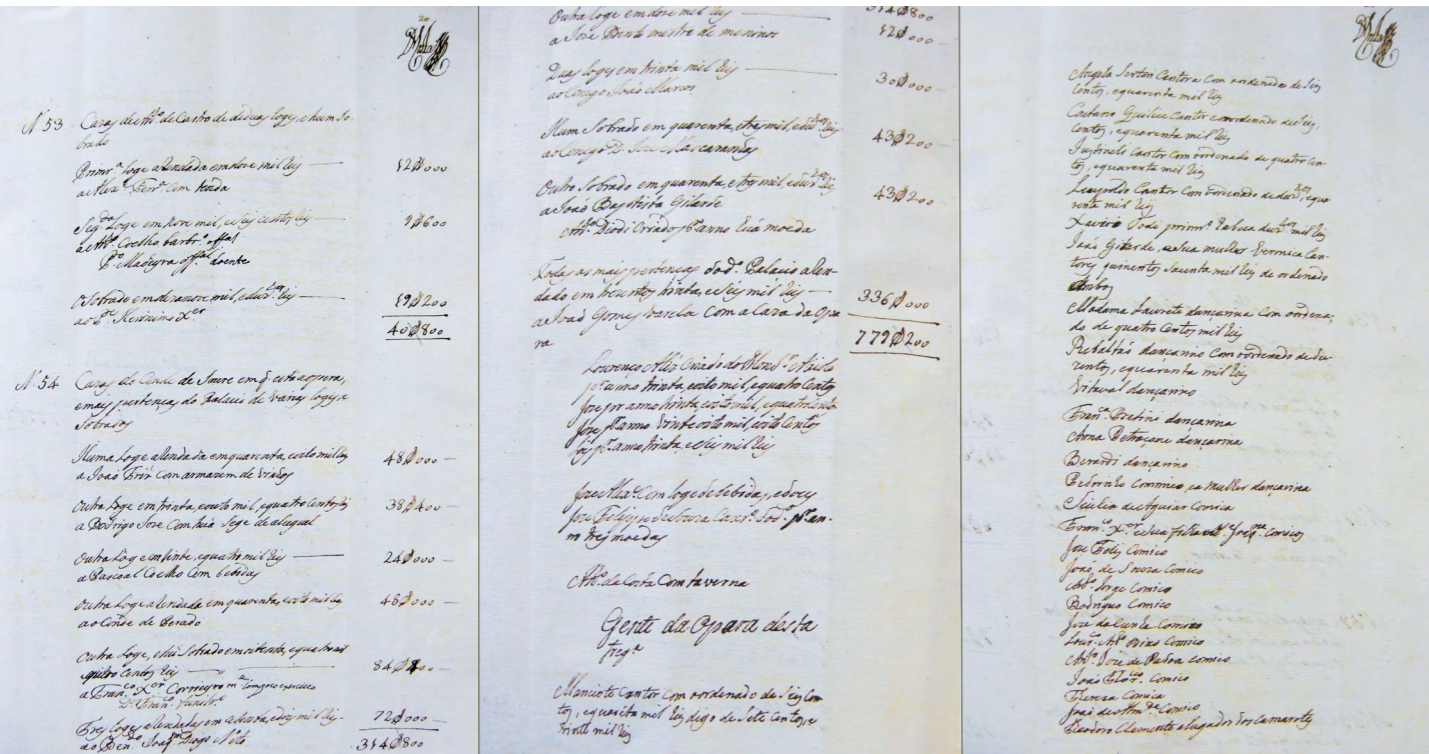 20
N 53 Cazas de Ant.º de Castro de de duas loges, e hum So-
brado
Primr.ª loge alendada em doze mil Reis 12$000
a Alex.e Ferr.ª Com tenda
Seg.da Loge em nove mil, e Seis centos Reis 9$600
a Ant.º Coelho barbr.º offal
P.º Madeyra off.al doente
O Sobrado em dezanove mil, e duz.tos Reis 19$200
ao Hieronimo X.er
40$800
N 54 Cazas do Conde de Soure em q. está a opera,
e mais pertenças do Palacio de varias loges, e
Sobrados
Huma Loge alendada em quarenta, e oito mil Reis 48$000
a João Friz Com armazem de Vinhos
Outra Loge em trinta, e outo mil, e quatro centos Reis 38$400
a Rodrigo Joze Com hũa Sege de aluguel
Outra Loge em Vinte, e quatro mil Reis 24$000
a Pascoal Coelho Com bebidas
Outra Loge alendada em quarenta, e oito mil Reis 48$000
ao Conde de
Outra Loge, e hũ Sobrado em oitenta, e quatro mil
quatro centos Reis 84$400
a Fran.co X.er Correyro
D. Fran.co
Tres loges alendadas em Setenta, e dois mil Reis 72$000
ao Joaq.m Diogo Neto
314$800
Outra Loge em doze mil Reis 314$800
a Joze Bento mestre de meninos 12$000
Duas loges em trinta mil Reis 30$000
ao Conego João Marcos
Hum Sobrado em quarenta, e tres mil, e duz.tos Reis 43$200
ao Conego D. Joze Mascarenhas
Outro Sobrado em quarenta, e tres mil, e duz.tos Reis 43$200
a João Baptista Gilarde
Ant.º Diodi Criado p.r anno hũa moeda
Todas as mais pertenças do d.º Palacio alen-
dado em trezentos trinta, e Seis mil Reis 336$000
a João Gomes Varela Com a Caza da Ope
ra 779$200
Lourenço Alz Criado do
p.r anno trinta, e oito mil, e quatro Centos
Joze por anno trinta, e oito mil, e quatrocentos
Joze p.r anno Vinte e oito mil, e oito Centos
p.r anno trinta, e Seis mil Reis
Joze Alex.e Com loge de bebidas, e doces
Joze Felis Caix.º do d.º p.r an-
no tres moedas
Ant.º da Costa Com taverna
Gente da Opara desta
freg.ª
Manciote Cantor Com oordenado de Seis Cen
tos, e quarenta mil Reis digo de Sete Centos, e
Vinte mil Reis
Angelo Cantora Com oordenado de Seis
Centos, e quarenta mil Reis
Caetano Cantor com ordenado de Seis,
Centos, e quarenta mil Reis
Justinele Cantor Com oordenado de quatro Cen
tos, e quarenta mil Reis
Leuypoldo Cantor Com oordenado de duz.tos, e qua
renta mil Reis
Xavério Todi primr.ª Rabeca duz.tos mil Reis
João Gilarde, e Sua mulher Veronica Can-
tores quinentos Secenta mil Reis de ordenado
Ambos
Madama Laurete dançarina Com ordena
do de quatro Centos mil Reis
Com oordenado de du
zentos, e quarenta mil Reis
Vitaval dançarino
Fran.ca dançarina
Anna dançarina
Berardi dançarino
Pedrinho Commico, e a mulher dançarina
Cicilia de Aguiar Comica
Fran.co X.er e Sua filha M.ª Joaq.na Comicos
Joze Felis Comico
João de Souza Comico
Ant.º Jorge Comico
Rodrigo Comico
Joze da Cunha Comico
Lour.ço Ant.º Comico
Ant.º Joze de Paula Comico
João Comico
Comica
João de Alm.da Comico
Theodoro Clemente alugador dos Camarotes